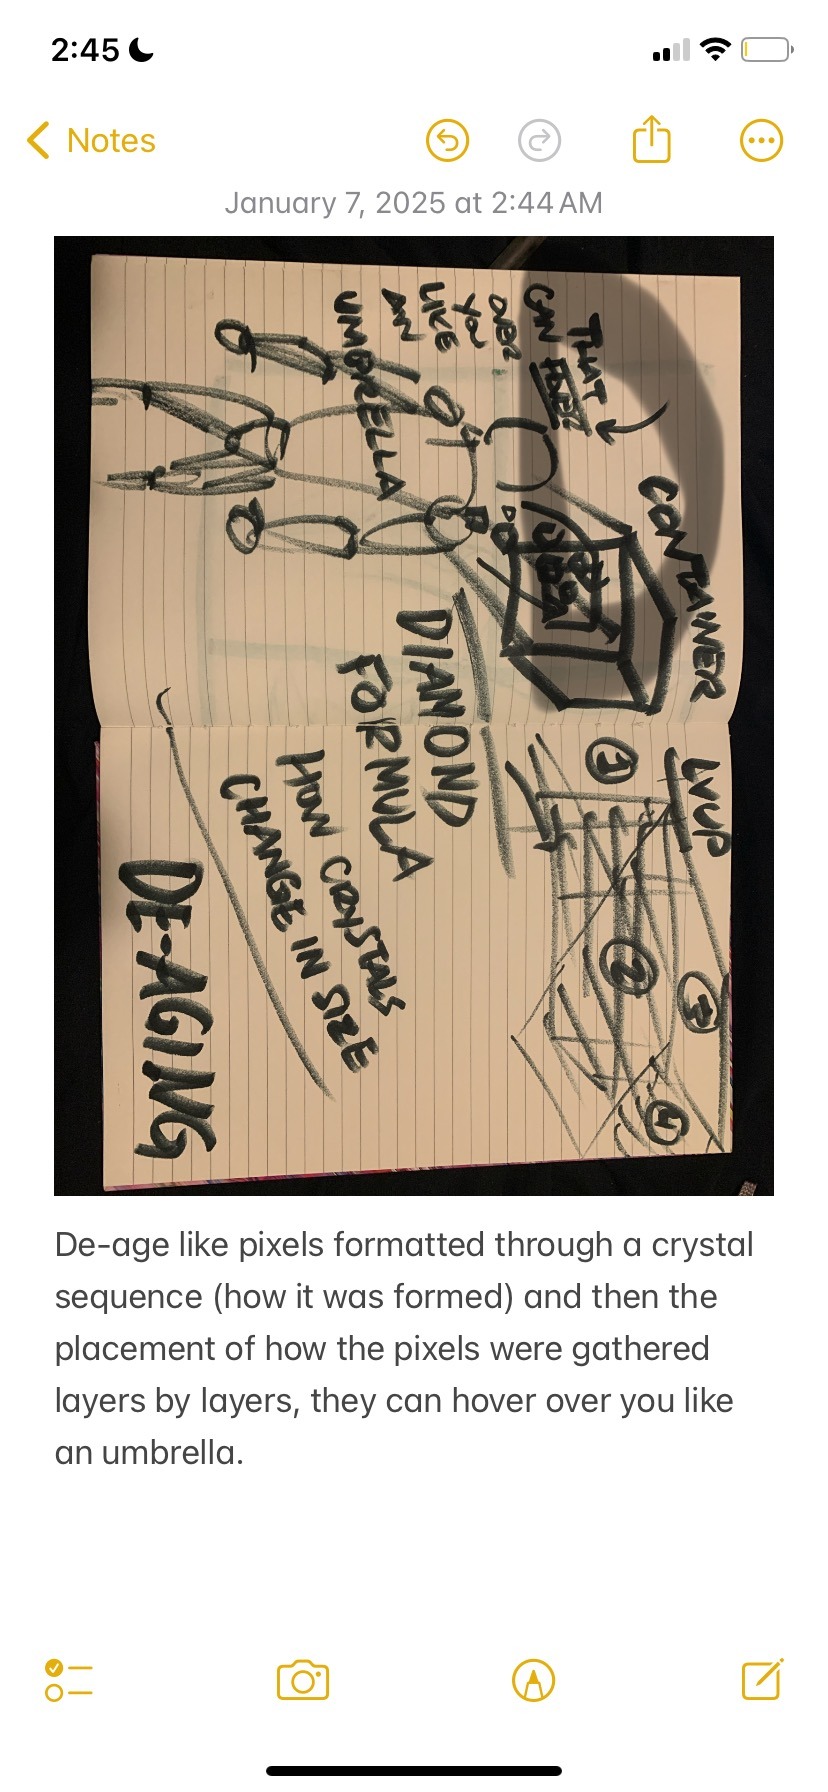 2:45
Notes
January 7, 2025 at 2:44 AM
CONTAINER
THAT
CAN
OVER
YOU
LIKE
AN
UMBRELLA
DIAMOND
FORMULA
LVUP
1
2
3
4
HOW CRYSTALS
CHANGE IN SIZE
DE-AGING
De-age like pixels formatted through a crystal
sequence (how it was formed) and then the
placement of how the pixels were gathered
layers by layers, they can hover over you like
an umbrella.